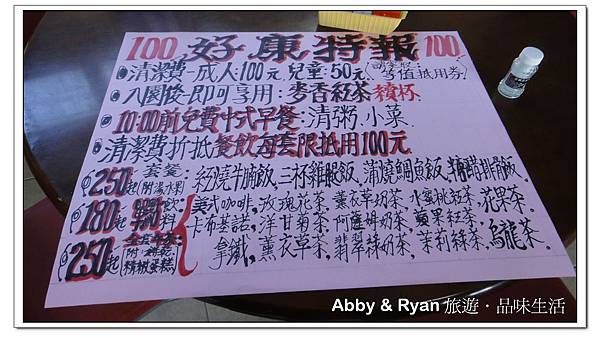 100 好康特報 100
清潔費-成人:100元.兒童:50元
等值抵用券
入園後-即可享用:麥香紅茶 續杯.
10:00前免費中式早餐:清粥.小菜
清潔費折抵餐飲每套限抵用100元.
250起 套餐(附湯.水果):紅燒牛腩飯.三杯雞腿飯.蒲燒鯛魚飯.糖醋排骨飯.
180起 飲料 美式咖啡.玫瑰花茶.薰衣草奶茶.水蜜桃紅茶.花果茶.
卡布基諾.洋甘菊茶.阿薩姆奶茶.蘋果紅茶.
250起 精緻蛋糕 拿鐵.薰衣草茶.翡翠綠奶茶.茉莉綠茶.烏龍茶.
Abby & Ryan 旅遊・品味生活